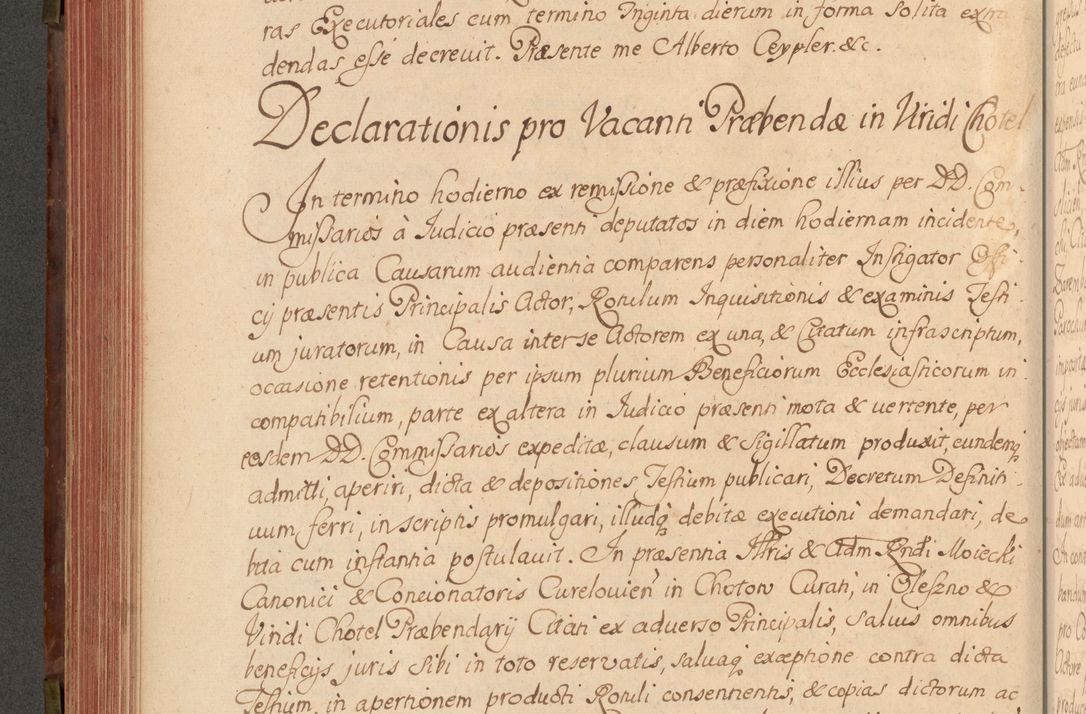 ras Executoriales cum termino Triginta dierum in forma solita extra
dendas esse decrevit. Præsente me Alberto Ceypler. &c.
Declarationis pro Vacanti Præbendæ in Viridi Chotel
In termino hodierno ex remissione & præfixione illius per DD. Com-
missarios à Judicio præsenti deputatos in diem hodiernam incidente,
in publica Causarum audientia comparens personaliter Instigator Offi-
cij præsentis Principalis Actor, Rotulum Inquisitionis & examinis Testi-
um juratorum, in Causa inter se Actorem ex una, & Citatum infrascriptum,
occasione retentionis per ipsum plurium Beneficiorum Ecclesiasticorum in
compatibilium, parte ex altera in Judicio præsenti mota & vertente, per
eosdem DD. Commissarios expeditæ, clausum & sigillatum produxit, eundemq
admitti, aperiri, dicta & depositiones Testium publicari, Decretum Definiti-
vum ferri, in scriptis promulgari, illudq debitæ executioni demandari, de
bita cum instantia postulavit. In præsentia Illris & Adm Rndi Moiecki
Canonici & Concionatoris Curelovien in Chotow Curati, in Oleszno &
Viridi Chotel Præbendarij Citati ex adverso Principalis, salvis omnibus
beneficijs juris sibi in toto reservatis, salvaq exceptione contra dicta
Testium, in apertionem producti Rotuli consentientis, & copias dictorum ac